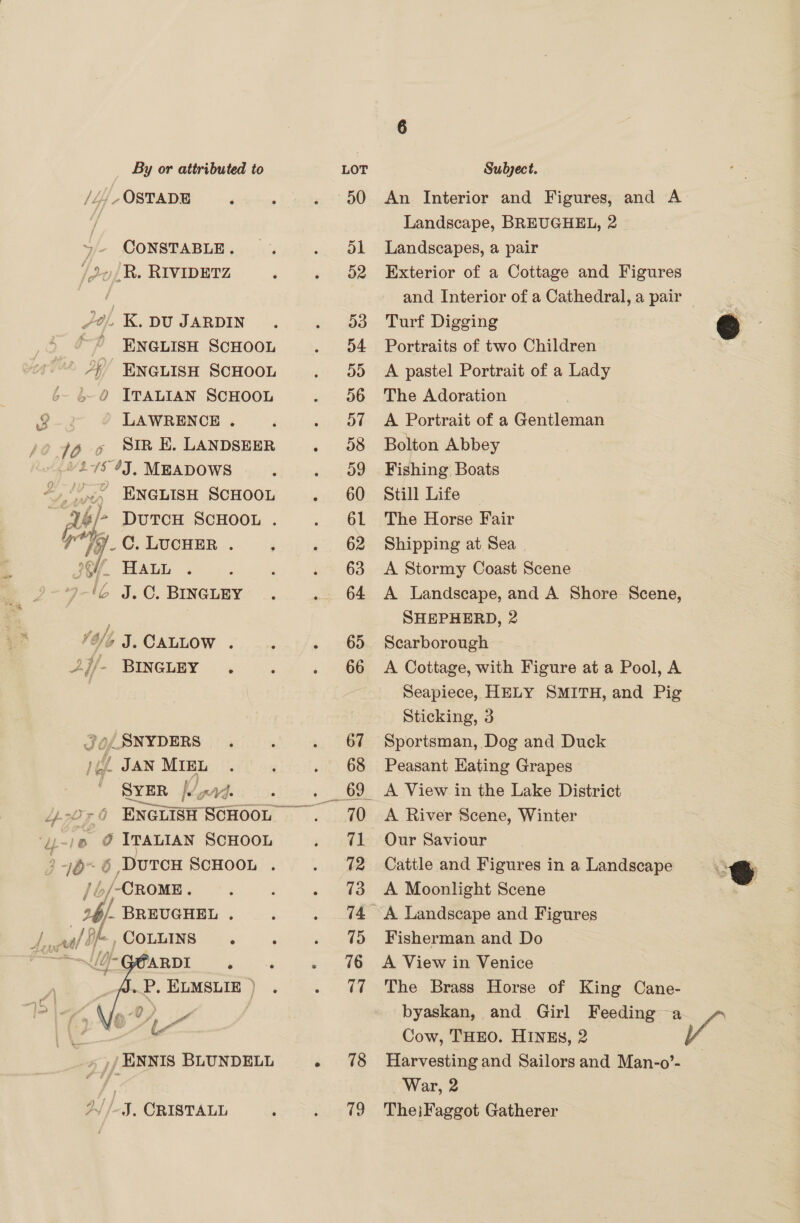 6
By or attributed to LOT Subject.
OSTADE . . . 50 An Interior and Figures, and A
Landscape, BREUGHEL, 2
CONSTABLE . . . 51 Landscapes, a pair
R. RIVIDETZ . . 52 Exterior of a Cottage and Figures
and Interior of a Cathedral, a pair
K. DU JARDIN . . 53 Turf Digging
ENGLISH SCHOOL . 54 Portraits of two Children
ENGLISH SCHOOL . 55 A pastel Portrait of a Lady
ITALIAN SCHOOL . 56 The Adoration
LAWRENCE . . . 57 A Portrait of a Gentleman
SIR E. LANDSEER . 58 Bolton Abbey
J. MEADOWS . . 59 Fishing Boats
ENGLISH SCHOOL . 60 Still Life
DUTCH SCHOOL . . 61 The Horse Fair
C. LUCHER . . . 62 Shipping at Sea
HALL . . . . 63 A Stormy Coast Scene
J. C. BINGLEY . . 64 A Landscape, and A Shore Scene,
SHEPHERD, 2
J. CALLOW . . . 65 Scarborough
BINGLEY . . . 66 A Cottage, with Figure at a Pool, A
Seapiece, HELY SMITH, and Pig
Sticking, 3
SNYDERS . . . 67 Sportsman, Dog and Duck
JAN MIEL . . . 68 Peasant Eating Grapes
SYER . . 69 A View in the Lake District
ENGLISH SCHOOL . 70 A River Scene, Winter
ITALIAN SCHOOL . 71 Our Saviour
DUTCH SCHOOL . . 72 Cattle and Figures in a Landscape
CROME . . . . 73 A Moonlight Scene
BREUGHEL . . . 74 A Landscape and Figures
COLLINS . . . 75 Fisherman and Do
GUARDI . . . 76 A View in Venice
J. P. ELMSLIE ) . . 77 The Brass Horse of King Cane-
byaskan, and Girl Feeding a
Cow, THEO. HINES, 2
ENNIS BLUNDELL . 78 Harvesting and Sailors and Man-o'-
War, 2
J. CRISTALL . . 79 The Faggot Gatherer